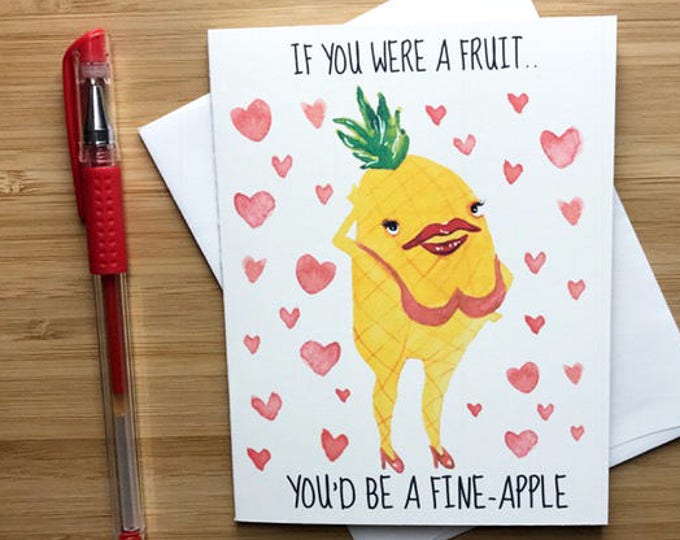 IF YOU WERE A FRUIT..
YOU'D BE A FINE-APPLE